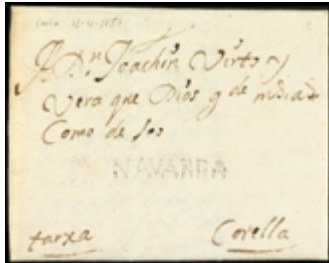 A Dn Joachin Virto y
Vera que Dios g de ms as
Como de seo
NAVARRA
tarxa Corella